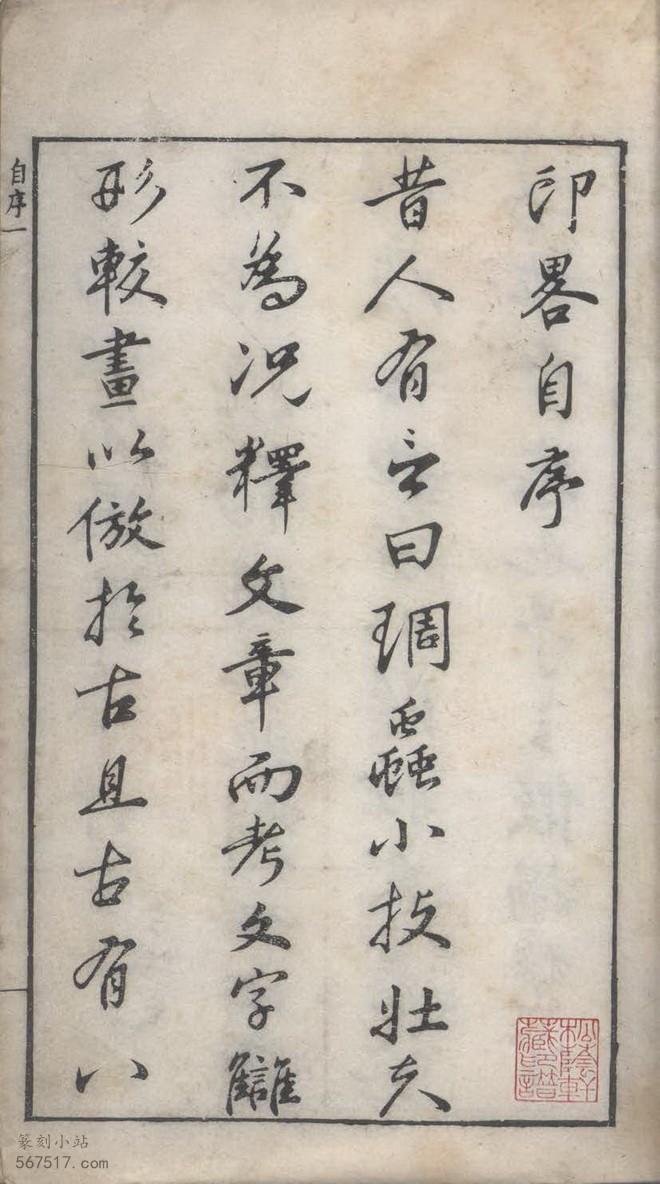 印畧自序
昔人有言曰琱蟲小技壯夫
不為況釋文章而考文字讎
形較畫以倣於古且古有八
自序一
松蔭軒藏印譜
篆刻小站
567517.com